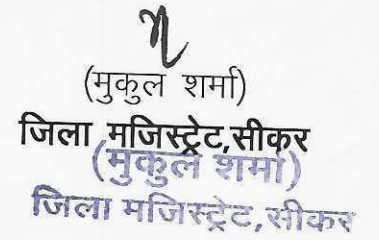 (मुकुल शर्मा)
जिला मजिस्ट्रेट,सीकर
(मुकुल शर्मा)
जिला मजिस्ट्रेट,सीकर